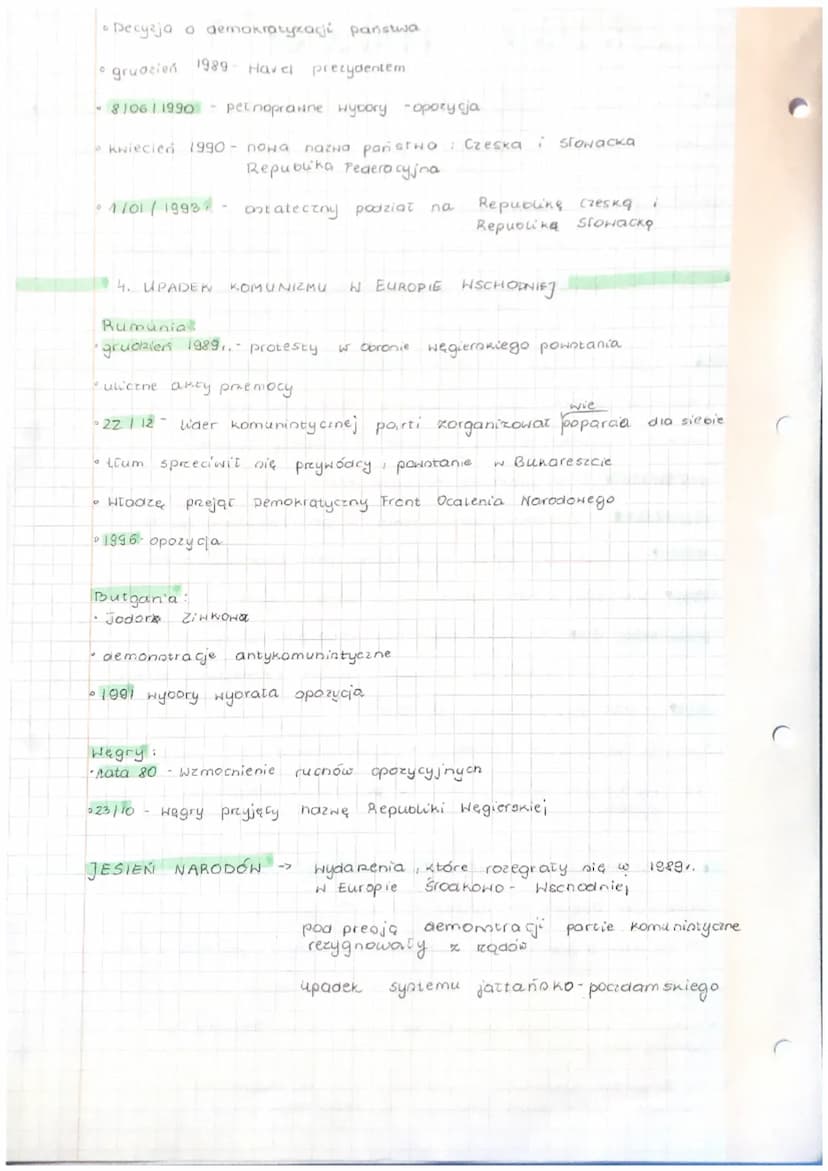 • Decyzja o demokratyzacji państwa
• grudzień 1989 - Havel prezydentem
• 8/06/1990 - pełnoprawne wybory - opozycja
• kwiecień 1990 - nowa nazwa państwa : Czeska i Słowacka
Republika Federacyjna
• 1/01/1993r. - ostateczny podział na Republikę Czeską i
Republikę Słowacką
4. UPADEK KOMUNIZMU W EUROPIE WSCHODNIEJ
Rumunia:
• grudzień 1989r. - protesty w obronie węgierskiego powstania
• uliczne akty przemocy
wie
• 22/12 - lider komunistycznej parti zorganizował poparcia dla siebie
• tłum sprzeciwił się przywódcy, powstanie w Bukareszcie
• Władzę przejął Demokratyczny Front Ocalenia Narodowego
• 1996 - opozycja
Bułgaria:
• Todora Ziwkowa
• demonstracje antykomunistyczne
• 1991 wybory wybrała opozycja
Węgry :
• lata 80 - wzmocnienie ruchów opozycyjnych
• 23/10 - węgry przyjęły nazwę Republiki Węgierskiej
JESIEŃ NARODÓW -> wydarzenia, które rozegrały się w 1989r.
w Europie Środkowo - Wschodniej
pod presją demonstracji partie komunistyczne
rezygnowały z rządów
upadek systemu jałtańsko-poczdamskiego